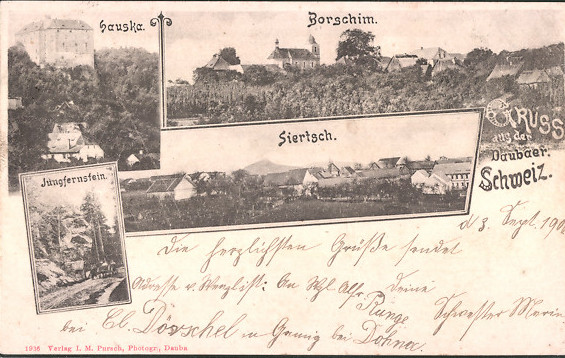 Hauska.
Borschim.
Siertsch.
Jungfernstein.
GRUSS
aus der
Daubaer
Schweiz.
d 3. Sept. 190
Die herzlichsten Grüße sendet
deine
Schwester Marie
Adresse v. : An
bei in bei Dohna.
1936 Verlag I. M. Pursch, Photogr., Dauba